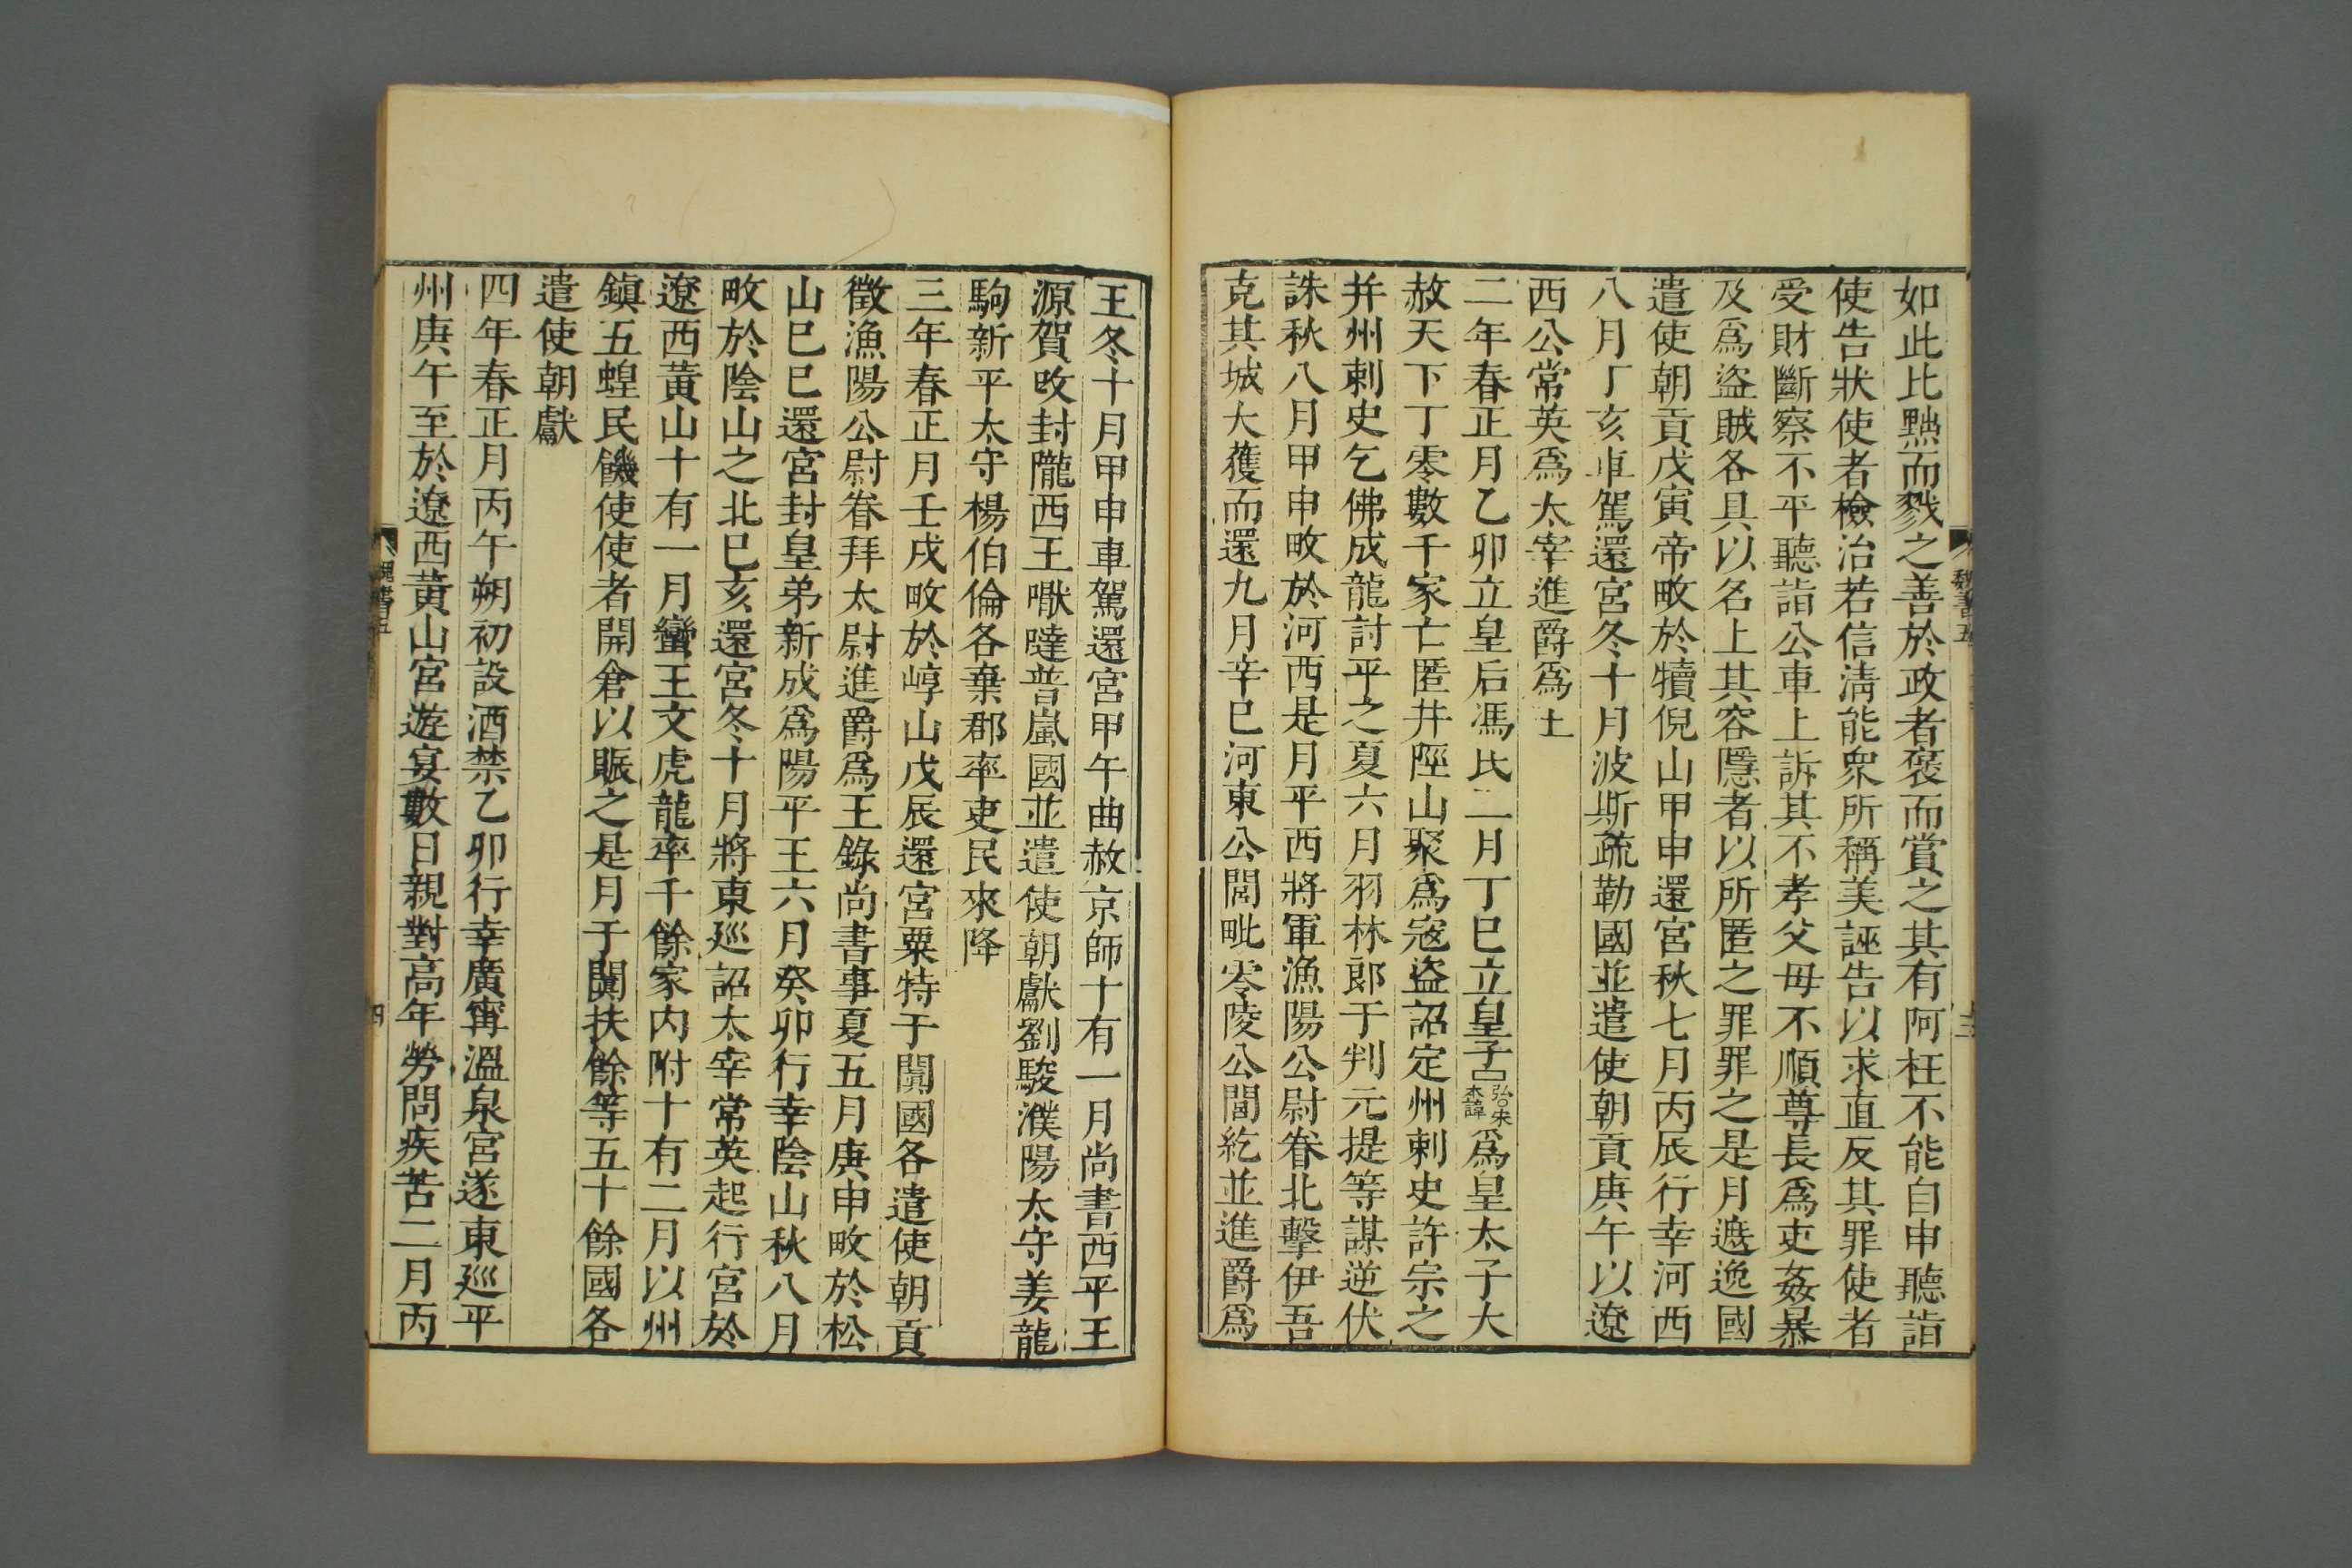 如此比黜而戮之善於政者褒而賞之其有阿枉不能自申聽詣
使告狀使者檢治若信淸能衆所稱美誣告以求直反其罪使者
受財斷察不平聽詣公車上訴其不孝父母不順尊長爲吏姦暴
及爲盜賊各具以名上其容隱者以所匿之罪罪之是月遮逸國
遣使朝貢戊寅帝畋於犢倪山甲申還宮秋七月丙辰行幸河西
八月丁亥車駕還宮冬十月波斯疏勒國並遣使朝貢庚午以遼
西公常英爲太宰進爵爲王
二年春正月乙卯立皇后馮氏二月丁巳立皇子弘宋本諱爲皇太子大
赦天下丁零數千家亡匿井陘山聚爲寇盜詔定州刺史許宗之
并州刺史乞佛成龍討平之夏六月羽林郎于判元提等謀逆伏
誅秋八月甲申畋於河西是月平西將軍漁陽公尉眷北擊伊吾
克其城大獲而還九月辛巳河東公閭毗零陵公閭紇並進爵爲
魏書五
三
王冬十月甲申車駕還宮甲午曲赦京師十有一月尚書西平王
源賀改封隴西王嚈噠普嵐國並遣使朝獻劉駿濮陽太守姜龍
駒新平太守楊伯倫各棄郡率吏民來降
三年春正月壬戌畋於崞山戊辰還宮粟特于闐國各遣使朝貢
徵漁陽公尉眷拜太尉進爵爲王錄尚書事夏五月庚申畋於松
山巳巳還宮封皇弟新成爲陽平王六月癸卯行幸陰山秋八月
畋於陰山之北巳亥還宮冬十月將東廵詔太宰常英起行宮於
遼西黃山十有一月蠻王文虎龍率千餘家內附十有二月以州
鎮五蝗民饑使使者開倉以賑之是月于闐扶餘等五十餘國各
遣使朝獻
四年春正月丙午朔初設酒禁乙卯行幸廣甯溫泉宮遂東廵平
州庚午至於遼西黃山宮遊宴數日親對高年勞問疾苦二月丙
魏書五
四